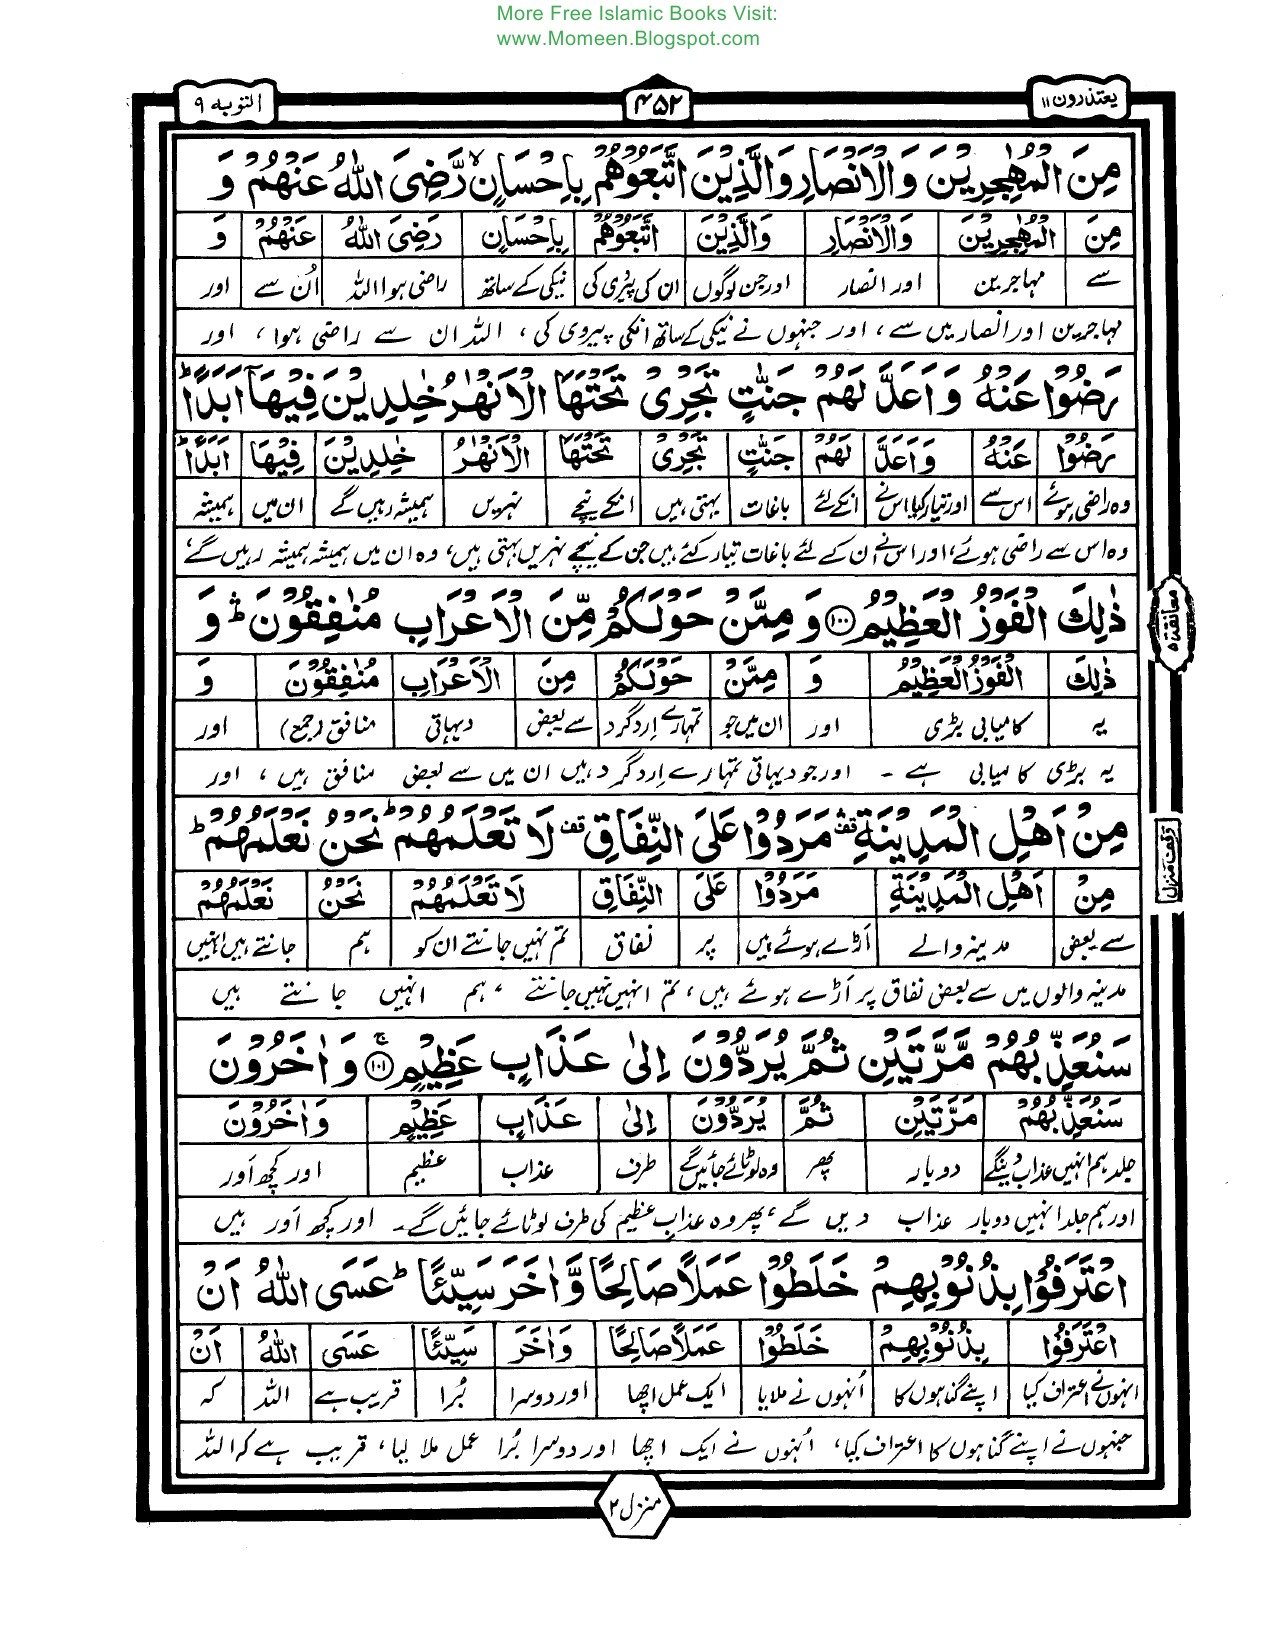 More Free Islamic Books Visit:
www.Momeen.Blogspot.com
یعتذرون ۱۱
۴۵۲
التوبہ ۹
مِنَ الْمُهٰجِرِیْنَ وَالْاَنْصَارِ وَالَّذِیْنَ اتَّبَعُوْهُمْ بِاِحْسَانٍ ۙ رَّضِیَ اللّٰهُ عَنْهُمْ وَ
مِنَ الْمُهٰجِرِیْنَ وَالْاَنْصَارِ وَالَّذِیْنَ اتَّبَعُوْهُمْ بِاِحْسَانٍ رَضِیَ اللّٰهُ عَنْهُمْ وَ
سے مہاجرین اور انصار اور جن لوگوں ان کی پیروی کی نیکی کے ساتھ راضی ہوا اللہ اُن سے اور
مہاجرین اور انصار میں سے، اور جنہوں نے نیکی کے ساتھ انکی پیروی کی، اللہ ان سے راضی ہوا، اور
رَضُوْا عَنْهُ وَاَعَدَّ لَهُمْ جَنّٰتٍ تَجْرِیْ تَحْتَهَا الْاَنْهٰرُ خٰلِدِیْنَ فِیْهَاۤ اَبَدًا ؕ
رَضُوْا عَنْهُ وَاَعَدَّ لَهُمْ جَنّٰتٍ تَجْرِیْ تَحْتَهَا الْاَنْهٰرُ خٰلِدِیْنَ فِیْهَا اَبَدًا ؕ
وہ راضی ہوئے اس سے اور تیار کیا اس نے انکے لئے باغات بہتی ہیں انکے نیچے نہریں ہمیشہ رہیں گے ان میں ہمیشہ
وہ اس سے راضی ہوئے، اور اس نے ان کے لئے باغات تیار کئے ہیں جن کے نیچے نہریں بہتی ہیں، وہ ان میں ہمیشہ ہمیشہ رہیں گے،
ذٰلِكَ الْفَوْزُ الْعَظِیْمُ ﴿۱۰۰﴾ وَمِمَّنْ حَوْلَكُمْ مِّنَ الْاَعْرَابِ مُنٰفِقُوْنَ ۛؕ وَ
معانقہ ۵
ذٰلِكَ الْفَوْزُ الْعَظِیْمُ وَ مِمَّنْ حَوْلَكُمْ مِنَ الْاَعْرَابِ مُنٰفِقُوْنَ وَ
یہ کامیابی بڑی اور ان میں جو تمہارے اردگرد سے بعض دیہاتی منافق (جمع) اور
یہ بڑی کامیابی ہے ۔ اور جو دیہاتی تمہارے اردگرد ہیں ان میں سے بعض منافق ہیں، اور
مِنْ اَهْلِ الْمَدِیْنَةِ ۛؔقف مَرَدُوْا عَلَی النِّفَاقِ قف لَا تَعْلَمُهُمْ ؕ نَحْنُ نَعْلَمُهُمْ ؕ
وقف منزل
مِنْ اَهْلِ الْمَدِیْنَةِ مَرَدُوْا عَلَی النِّفَاقِ لَا تَعْلَمُهُمْ نَحْنُ نَعْلَمُهُمْ
سے بعض مدینہ والے اَڑے ہوئے ہیں پر نفاق تم نہیں جانتے ان کو ہم جانتے ہیں انہیں
مدینہ والوں میں سے بعض نفاق پر اَڑے ہوئے ہیں، تم انہیں نہیں جانتے، ہم انہیں جانتے ہیں
سَنُعَذِّبُهُمْ مَّرَّتَیْنِ ثُمَّ یُرَدُّوْنَ اِلٰی عَذَابٍ عَظِیْمٍ ﴿۱۰۱﴾ۚ وَاٰخَرُوْنَ
سَنُعَذِّبُهُمْ مَرَّتَیْنِ ثُمَّ یُرَدُّوْنَ اِلٰی عَذَابٍ عَظِیْمٍ وَاٰخَرُوْنَ
جلد ہم انہیں عذاب دینگے دو بار پھر وہ لوٹائے جائیں گے طرف عذاب عظیم اور کچھ اَور
اور ہم جلد انہیں دو بار عذاب دیں گے، پھر وہ عذابِ عظیم کی طرف لوٹائے جائیں گے۔ اور کچھ اَور ہیں
اعْتَرَفُوْا بِذُنُوْبِهِمْ خَلَطُوْا عَمَلًا صَالِحًا وَّاٰخَرَ سَیِّئًا ؕ عَسَی اللّٰهُ اَنْ
اعْتَرَفُوْا بِذُنُوْبِهِمْ خَلَطُوْا عَمَلًا صَالِحًا وَاٰخَرَ سَیِّئًا عَسَی اللّٰهُ اَنْ
انہوں نے اعتراف کیا اپنے گناہوں کا اُنہوں نے ملایا ایک عمل اچھا اور دوسرا بُرا قریب ہے اللہ کہ
جنہوں نے اپنے گناہوں کا اعتراف کیا، اُنہوں نے ایک اچھا اور دوسرا بُرا عمل ملا لیا، قریب ہے کہ اللہ
منزل ۲